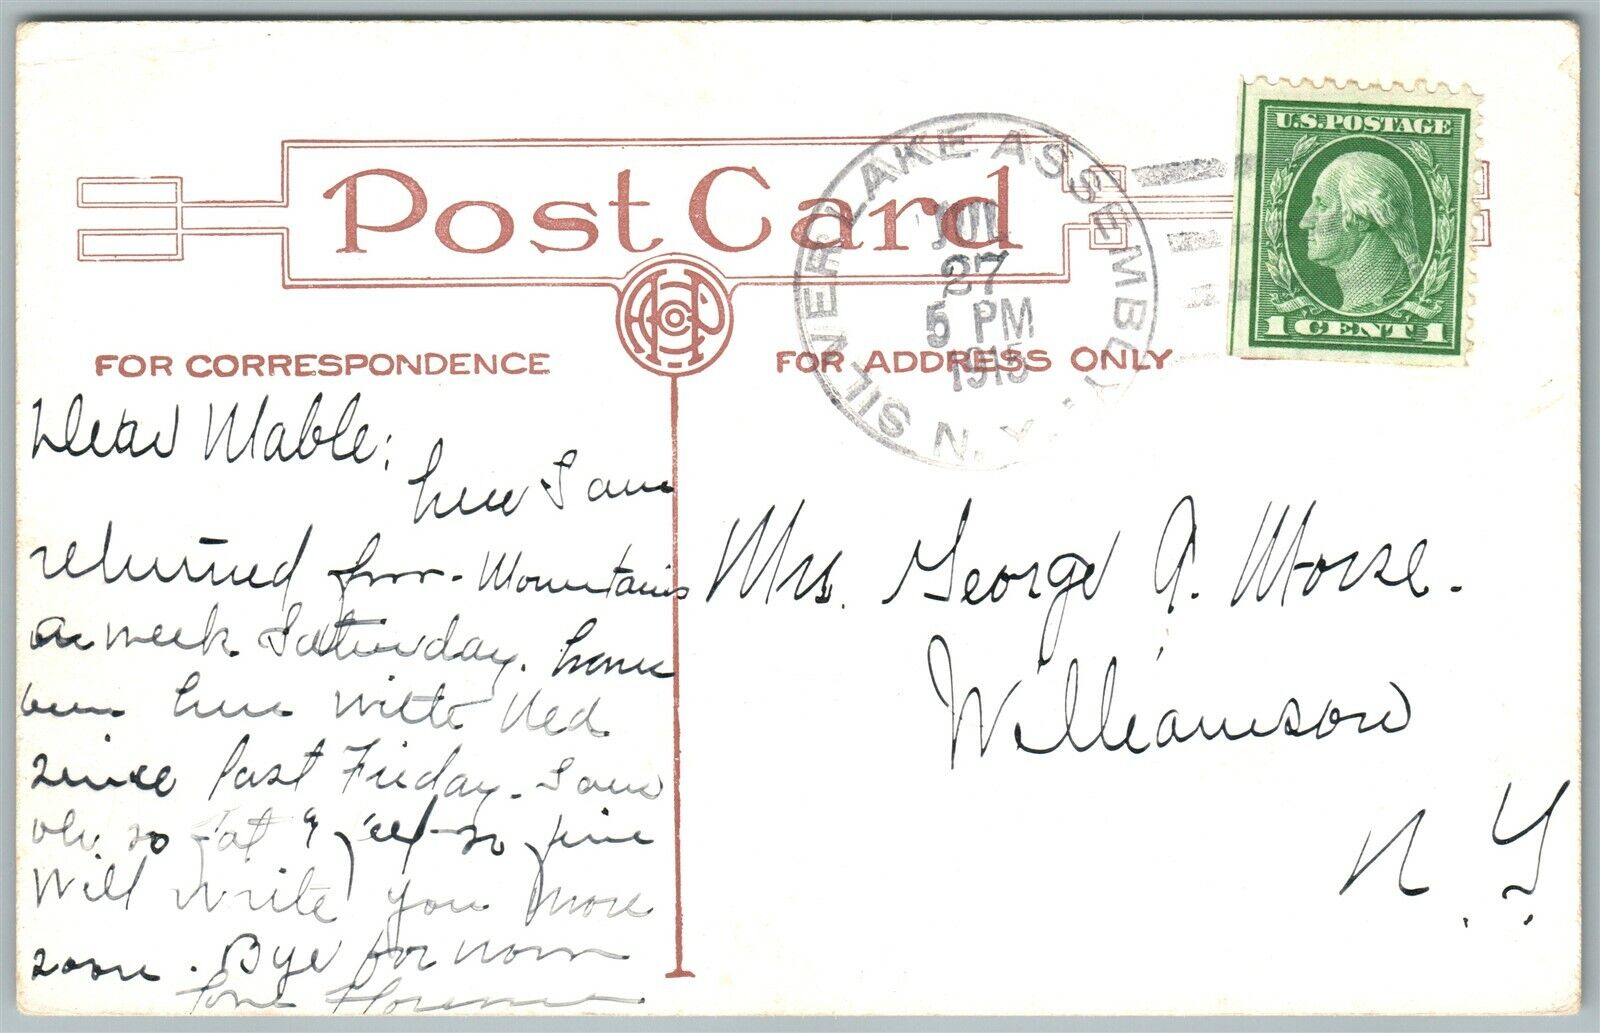 Post Card
FOR CORRESPONDENCE
FOR ADDRESS ONLY
SILVER LAKE ASSEMBLY, N.Y.
JUL
27
5 PM
1915
U.S. POSTAGE
1 CENT 1
Dear Mable;
here I am
returned from Mountains
a week Saturday. have
been here with Ned
since last Friday. I am
oh so fat & feel so fine
Will write you more
soon. Bye for now
Love Florence
Mrs. George A. Morse.
Williamson
N.Y.